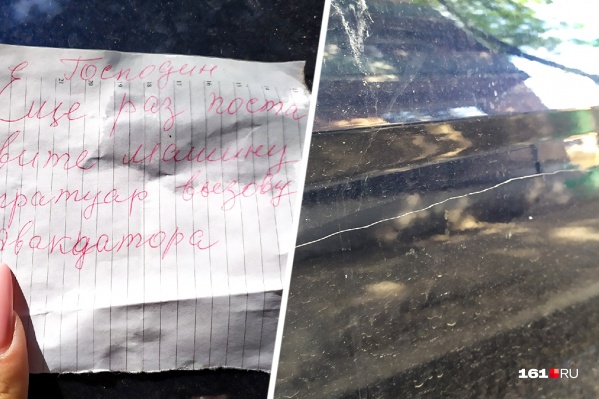 е Господин
Еще раз поста
вите машину
тратуар вызову
эвакдатора
161.RU